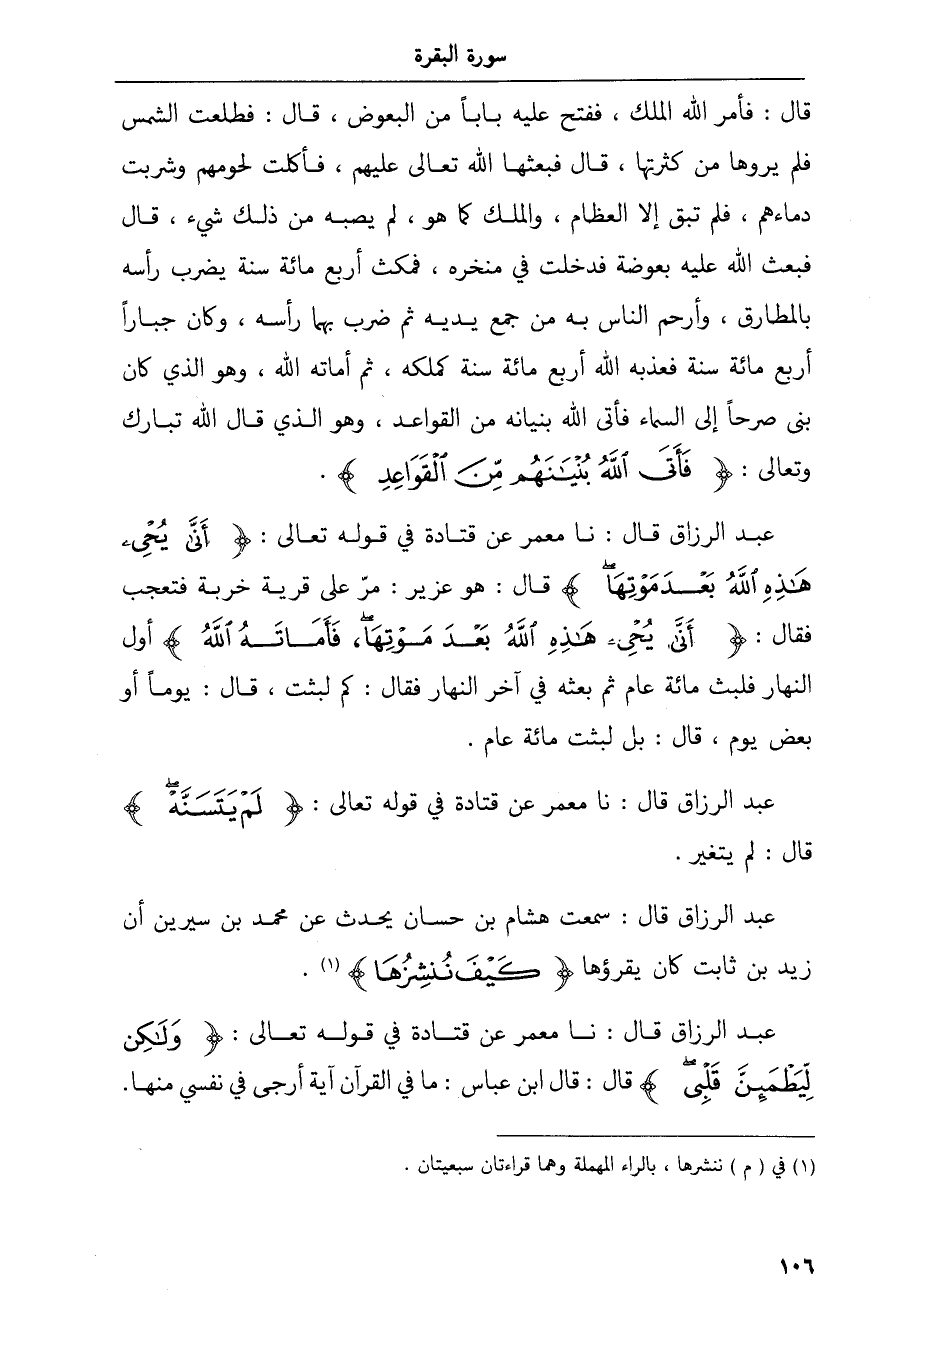 سورة البقرة
قال : فأمر الله الملك ، ففتح عليه بـابـاً من البعوض ، قـال : فطلعت الشمس
فلم يروها من كثرتها ، قـال فبعثهـا الله تعـالى عليهم ، فـأكلت لحومهم وشربت
دماءهم ، فلم تبق إلا العظام ، والملـك كما هو ، لم يصبـه من ذلـك شيء ، قـال
فبعث الله عليه بعوضة فدخلت في منخره ، فمكث أربع مائة سنة يضرب رأسه
بالمطارق ، وأرحم الناس بـه من جمع يـديـه ثم ضرب بها رأسـه ، وكان جبـاراً
أربع مائة سنة فعذبه الله أربع مائة سنة كملكه ، ثم أماته الله ، وهو الذي كان
بنى صرحاً إلى السماء فأتى الله بنيانه من القواعـد ، وهو الـذي قـال الله تبـارك
وتعالى : ﴿ فَأَتَى ٱللَّهُ بُنْيَـٰنَهُم مِّنَ ٱلْقَوَاعِدِ ﴾ .
عبـد الرزاق قـال : نـا معمر عن قتـادة في قـولـه تعـالى : ﴿ أَنَّىٰ يُحْيِۦ
هَـٰذِهِ ٱللَّهُ بَعْـدَ مَوْتِهَاۖ ﴾ قـال : هو عزير : مرّ على قريـة خربـة فتعجب
فقال : ﴿ أَنَّىٰ يُحْيِۦ هَـٰذِهِ ٱللَّهُ بَعْـدَ مَـوْتِهَاۖ فَأَمَـاتَـهُ ٱللَّهُ ﴾ أول
النهار فلبث مائة عام ثم بعثه في آخر النهار فقال : كم لبثت ، قـال : يومـاً أو
بعض يوم ، قال : بل لبثت مائة عام .
عبد الرزاق قال : نا معمر عن قتادة في قوله تعالى : ﴿ لَمْ يَتَسَنَّهْۖ ﴾
قال : لم يتغير .
عبد الرزاق قال : سمعت هشام بن حسـان يحـدث عن محمـد بن سيرين أن
زيد بن ثابت كان يقرؤها ﴿ كَيْفَ نُنشِزُهَا ﴾ (١) .
عبـد الرزاق قـال : نـا معمر عن قتـادة في قـولـه تعـالى : ﴿ وَلَـٰكِن
لِّيَطْمَئِنَّ قَلْبِىۖ ﴾ قال : قال ابن عباس : ما في القرآن آية أرجى في نفسي منهـا.
(١) في ( م ) ننشرها ، بالراء المهملة وهما قراءتان سبعيتان .
١٠٦